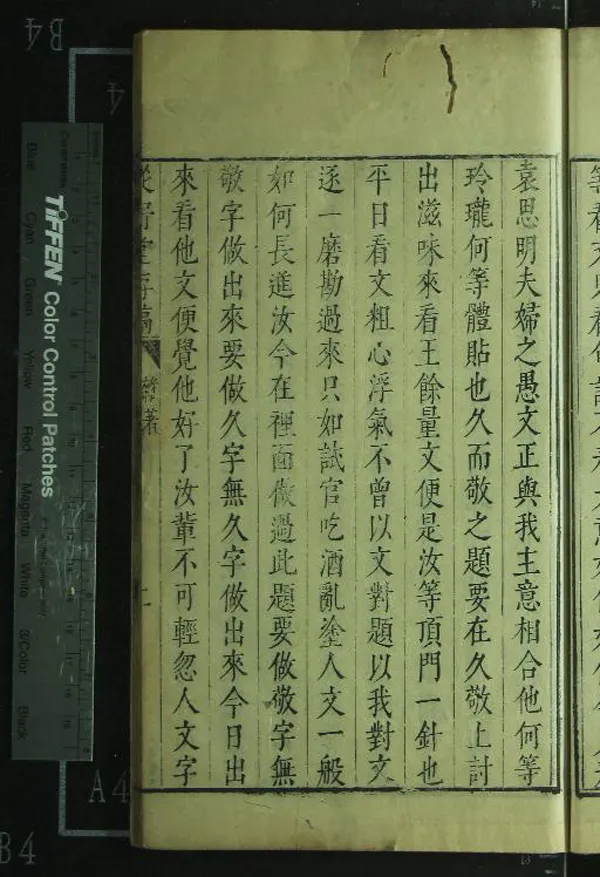 袁思明夫婦之愚文正與我主意相合他何等
玲瓏何等體貼也久而敬之題要在久敬上討
出滋味來看王餘量文便是汝等頂門一針也
平日看文粗心浮氣不曾以文對題以我對文
逐一磨勘過來只如試官吃酒亂塗人文一般
如何長進汝今在裡面做過此題要做敬字無
敬字做出來要做久字無久字做出來今日出
來看他文便覺他好了汝輩不可輕忽人文字
堂存稿 雜著
B4
4
A4
B4
TIFFEN Color Control Patches
Blue Cyan Green Yellow Red Magenta White 3/Color Black